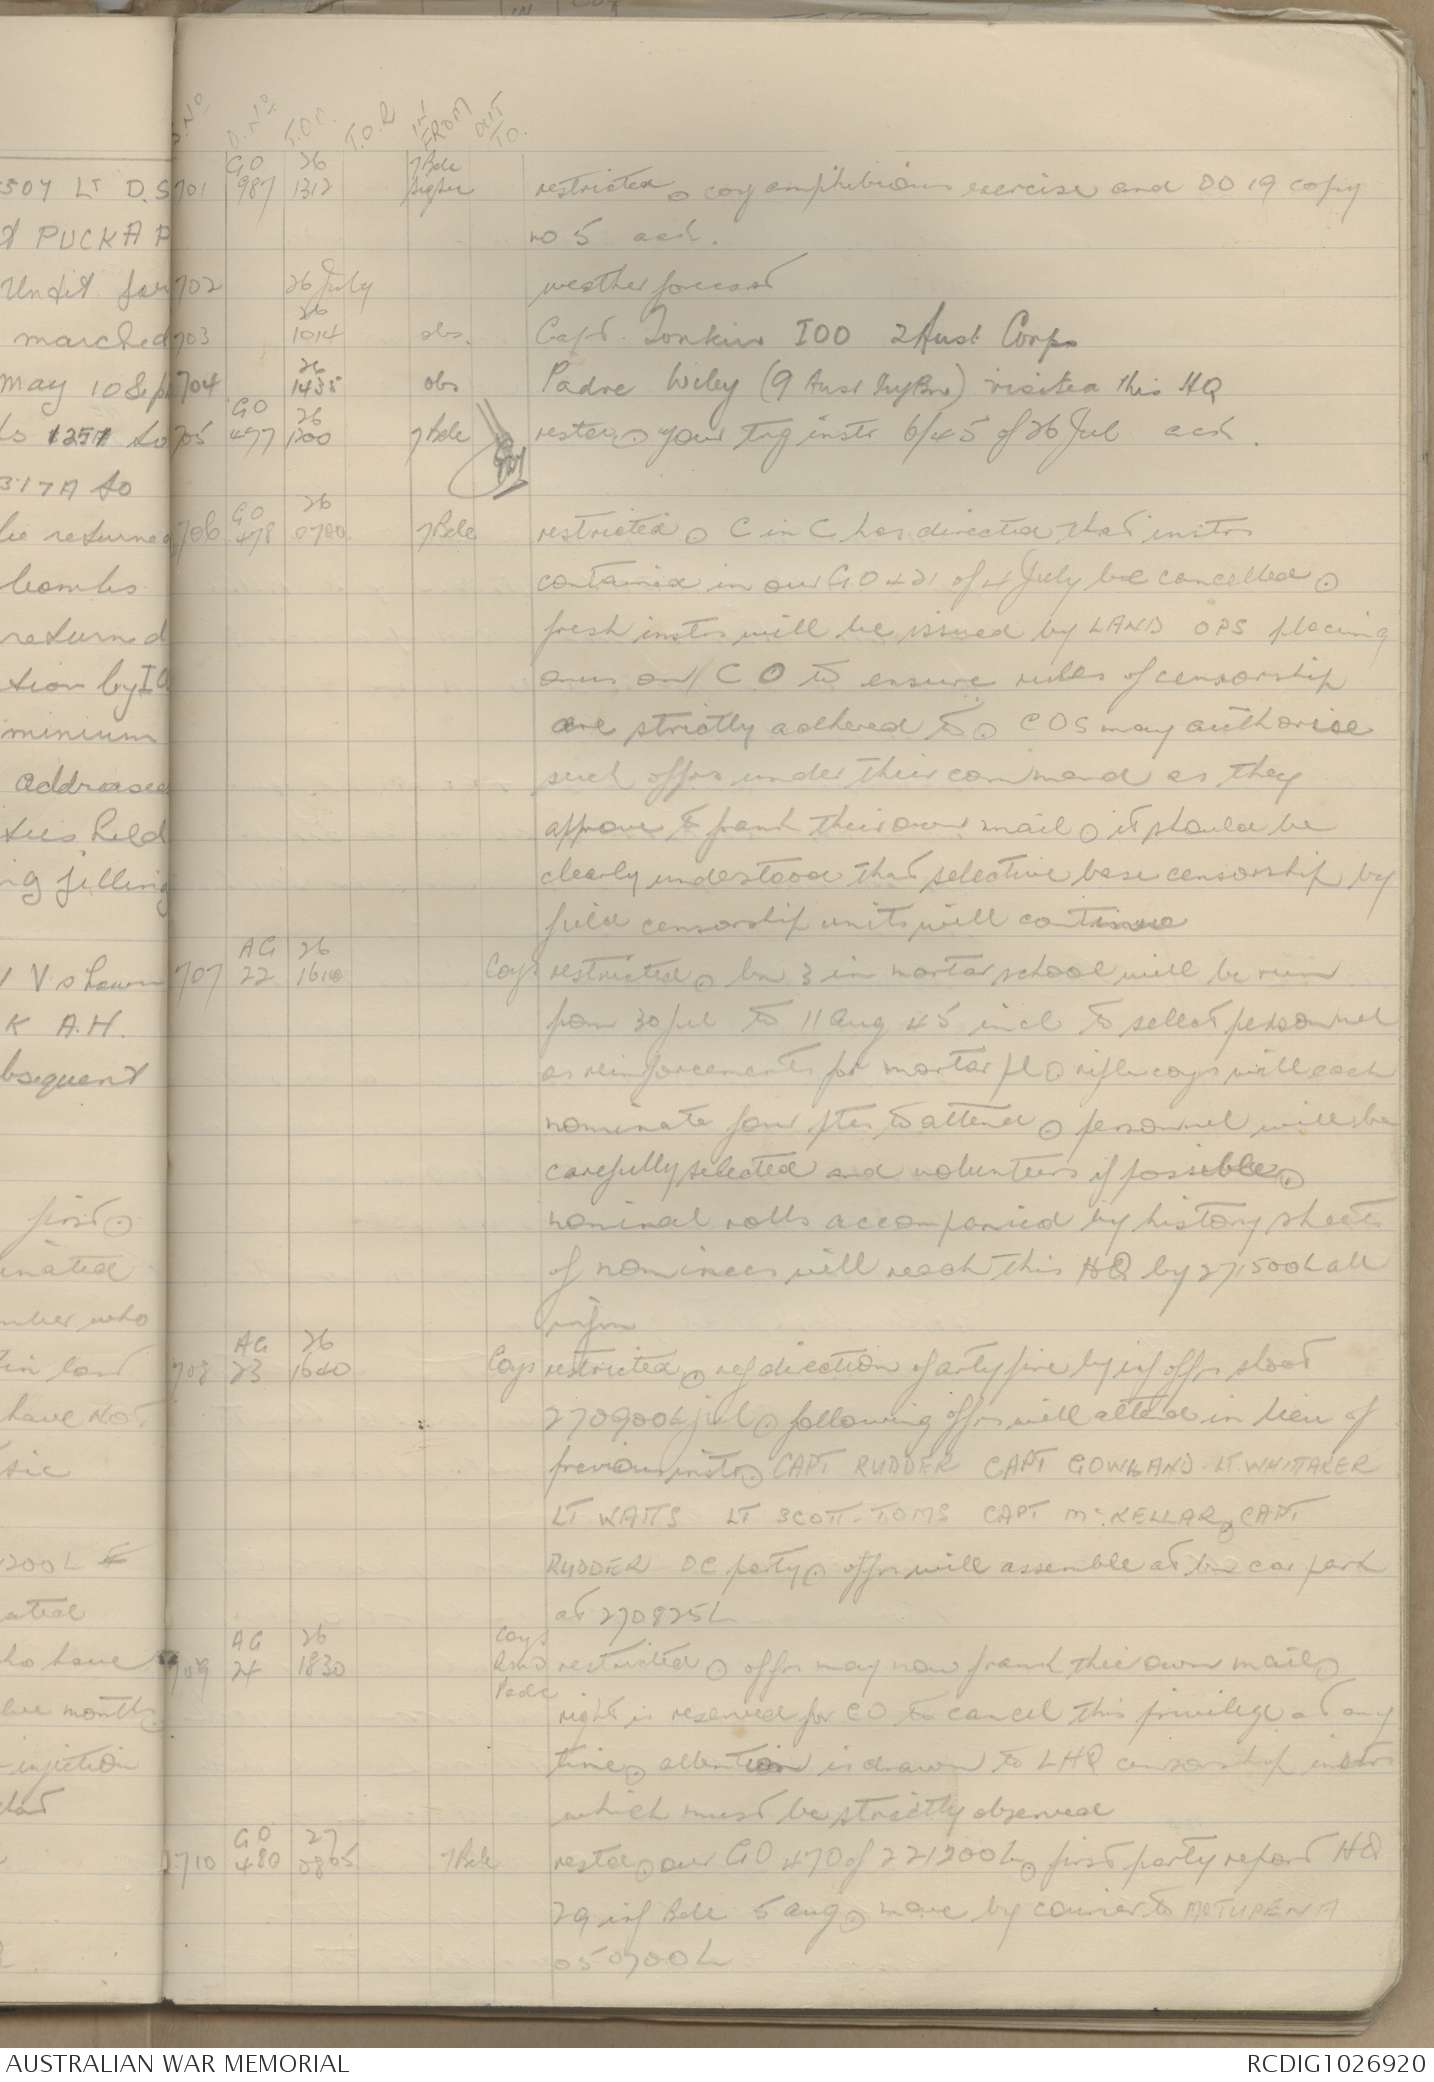 S.No. O.No. T.O.O. T.O.R IN FROM OUT TO.
701 GO 987 26 1312 7 Bde restricted ⊙ coy amphibious exercise and OO 19 copy
no 5 ack.
702 26 July weather forecast
703 26 1014 obs. Capt. Jonkin IOO 2 Aust Corps
704 26 1435 obs Padre Wiley (9 Aust Inf Bn) visited this HQ
705 GO 477 26 1200 7 Bde ⊙ your trg instr 6/45 of 26 Jul ack.
706 GO 478 26 0700 7 Bde restricted ⊙ C in C has directed that instrs
contained in our GO 421 of 4 July be cancelled ⊙
fresh instrs will be issued by LAND OPS placing
onus on CO to ensure rules of censorship
are strictly adhered to ⊙ COS may authorise
such offrs under their command as they
approve to frank their own mail ⊙ it should be
clearly understood that selective base censorship by
field censorship units will continue
707 AG 22 26 1610 Coys restricted ⊙ bn 3 in mortar school will be run
from 30 Jul to 11 Aug 45 incl to select personnel
as reinforcements for mortar pl ⊙ rifle coys will each
nominate four ptes to attend ⊙ personnel will be
carefully selected and volunteers if possible ⊙
nominal rolls accompanied by history sheets
of nominees will reach this HQ by 271500L all
infm
708 AG 23 26 1640 Coys restricted ⊙ ref direction of arty fire by inf offrs shoot
270900L jul ⊙ following offrs will attend in lieu of
previous instrs ⊙ CAPT RUDDER CAPT GOWLAND LT. WHITTAKER
LT WATTS LT SCOTT-TOMS CAPT McKELLAR ⊙ CAPT
RUDDER OC party ⊙ offrs will assemble at bn car park
at 270825L
709 AG 24 26 1830 Coys Padre restricted ⊙ offrs may now frank their own mail ⊙
right is reserved for CO to cancel this privilege at any
time ⊙ attention is drawn to LHQ censorship instrs
which must be strictly observed
2710 GO 480 27 0805 7 Bde restd ⊙ our GO 470 of 221200L ⊙ first party report HQ
29 inf Bde 5 aug ⊙ move by courier to MOTUPENA
050700L
507 Lt D.S
PUCKAP
Unfit for
marched
May 10 Sep
to 1251 to
317A to
be returned
bombs
returned
tion by IO
minium
addressed
ties held
ng filling
V shown
K A.H.
bsequent
first ⊙
inated
mber who
have NOT
200L
ho have
lve months
injection
AUSTRALIAN WAR MEMORIAL
RCDIG1026920